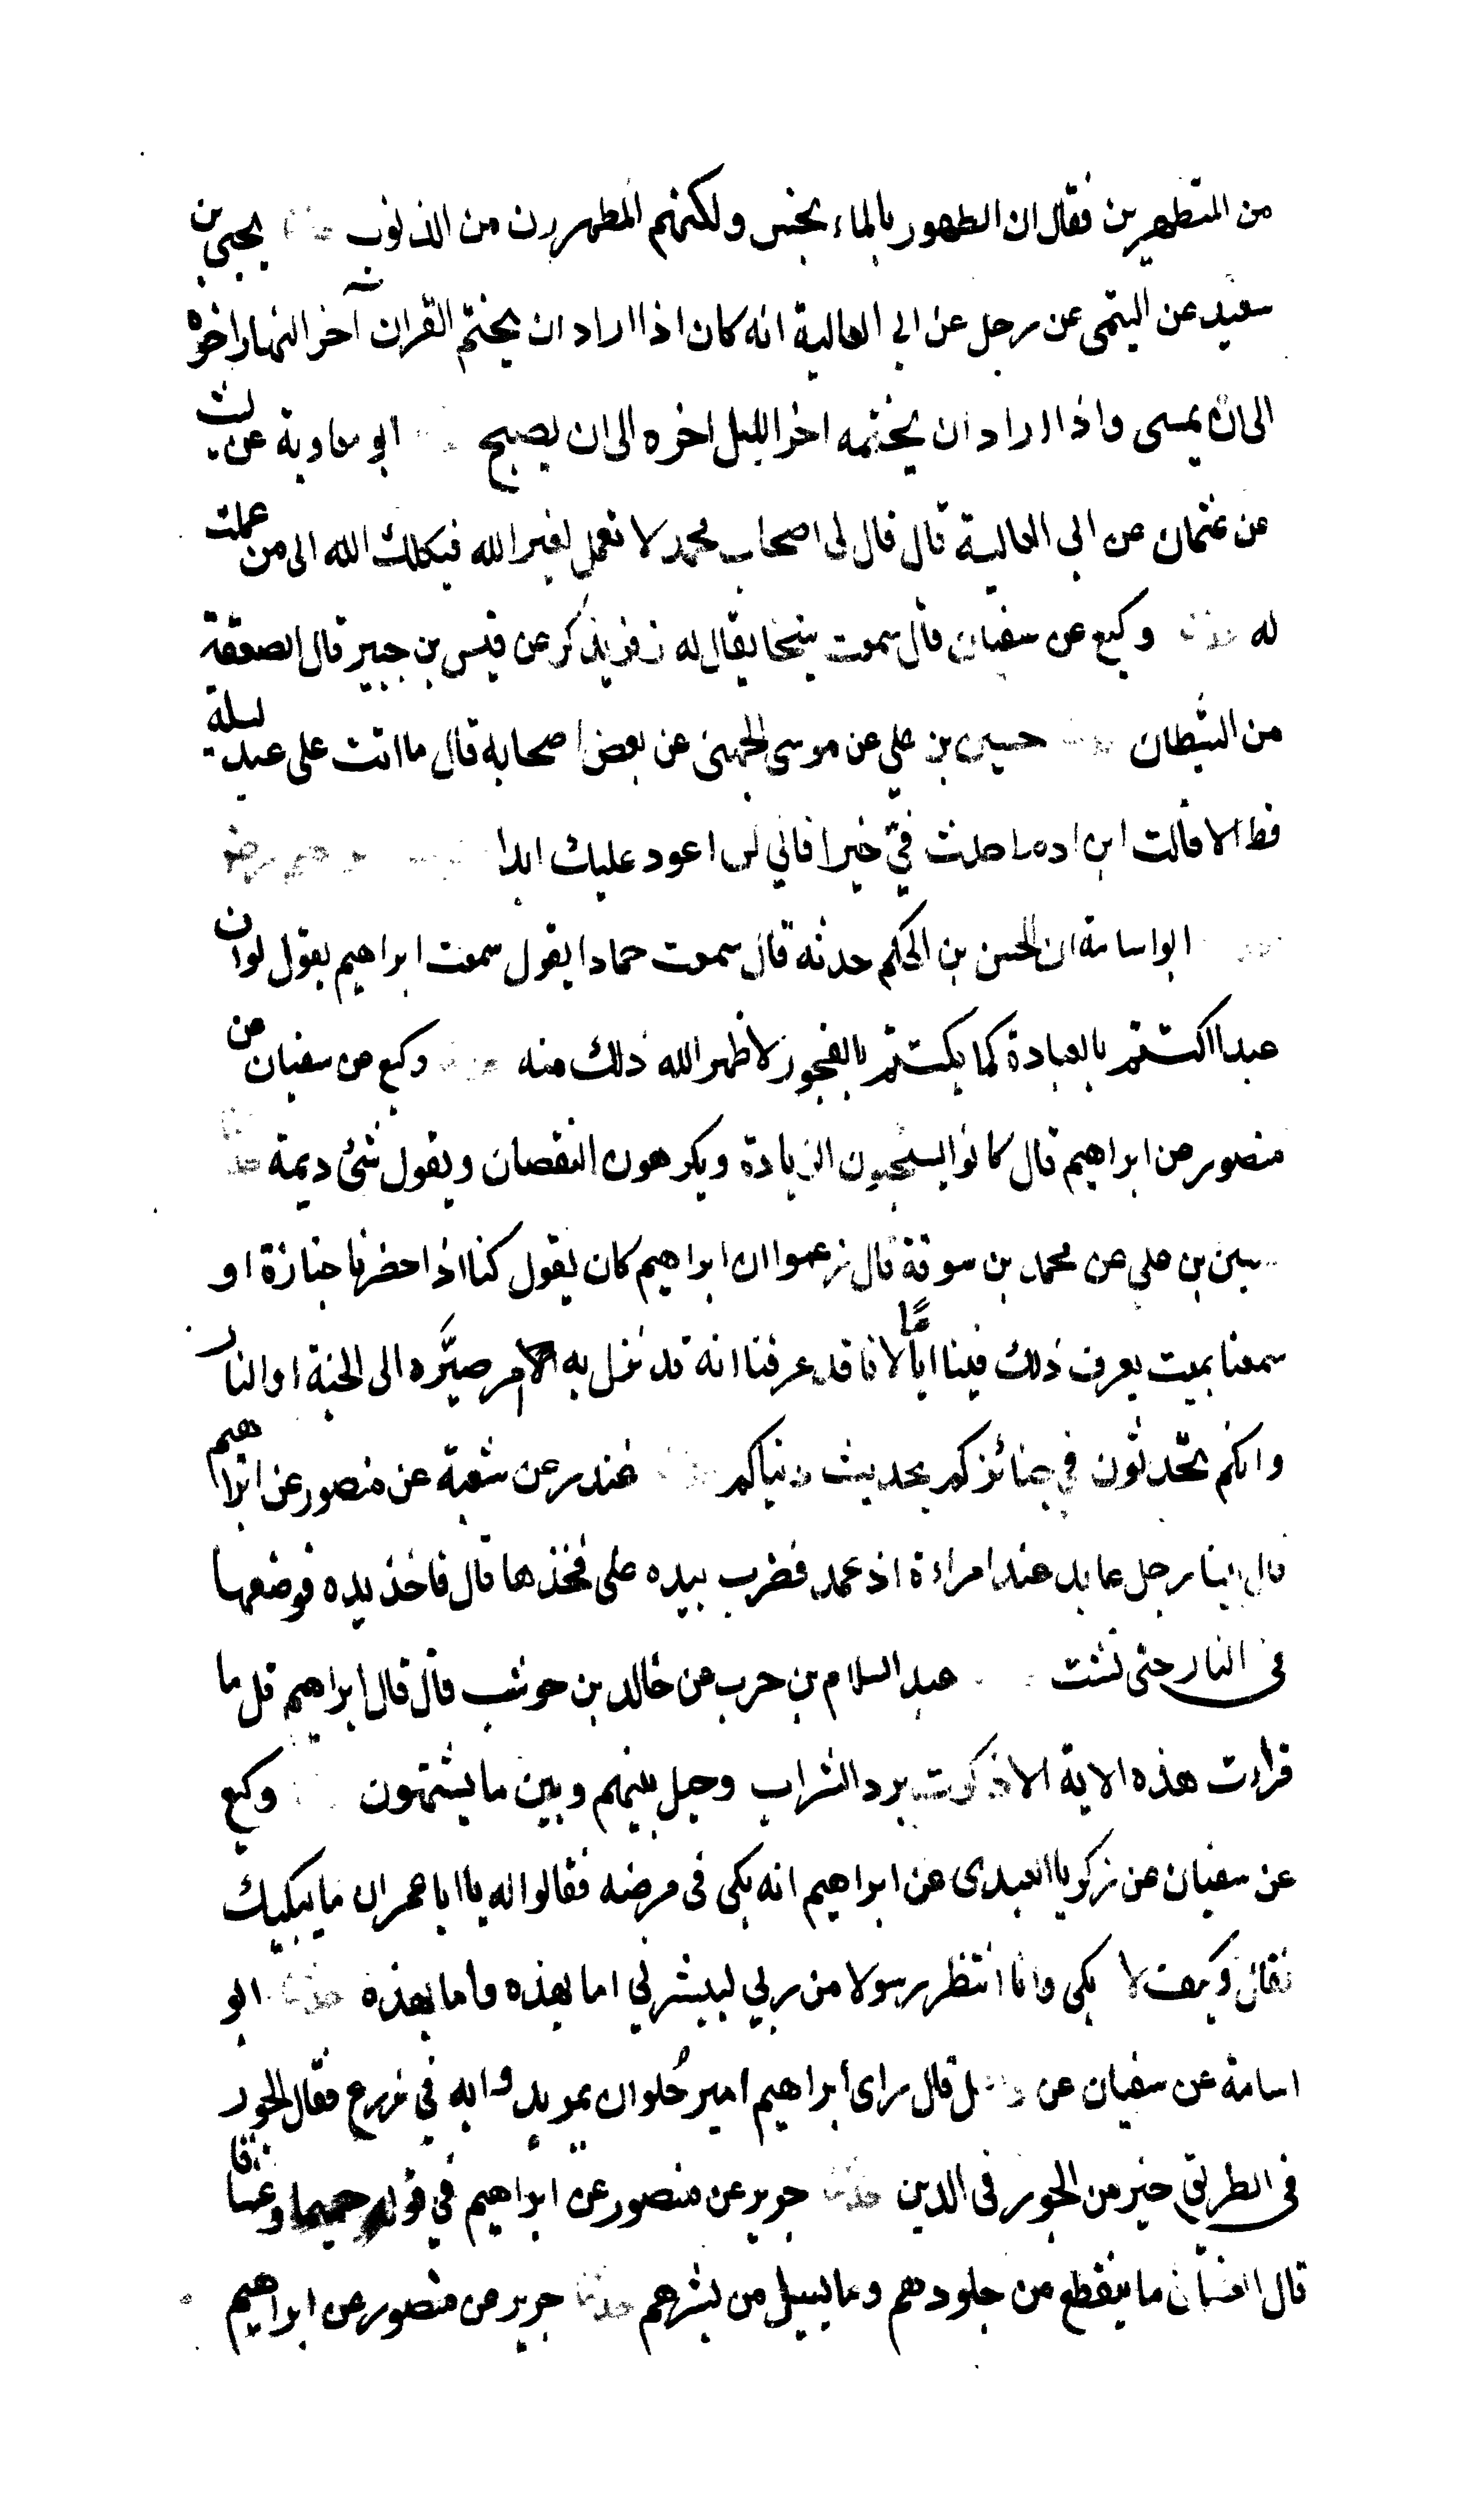 من المتطهرين فقال ان الطهور بالماء بحسن ولكنهم المطهرون من الذنوب حدثنا يحيى بن
سعيد عن التيمى عن رجل عن ابى العالية انه كان اذا اراد ان يختم القران آخر النهار اخره
الى ان يمسى واذا اراد ان يختمه اخر الليل اخره الى ان يصبح ابو معاوية عن ليث
عن عثمان عن ابى العالية قال قال لى اصحاب محمد لا تعمل لغير الله فيكلك الله الى من عملت
له حدثنا وكيع عن سفيان قال سمعت شيخا يقال له زفر يذكر عن قيس بن حبير قال الصعقة
من الشيطان حسين بن على عن موسى الجهنى عن بعض اصحابه قال ما اتت على عبد ليلة
قط الا قالت ابن ادم احدث فيّ خيرا فانى لن اعود عليك ابدا
ابو اسامة ان الحسن بن الحكم حدثه قال سمعت حمادا يقول سمعت ابراهيم يقول لو ان
عبدا اكتتم بالعبادة كما يكتتم بالفجور لاظهر الله ذلك منه وكيع عن سفيان عن
منصور عن ابراهيم قال كانوا يستحبون الزيادة ويكرهون النقصان ويقول شئ ديمة حدثنا
حسين بن على عن محمد بن سوقة قال زعموا ان ابراهيم كان يقول كنا اذا حضرنا جنازة او
سمعنا بميت يعرف ذلك فينا اياما لانا قد عرفنا انه قد نزل به امر صيّره الى الجنة او النار
وانكم تحدثون في جنائزكم بحديث دنياكم حدثنا غندر عن شعبة عن منصور عن ابراهيم
قال بينا رجل عابد عند امراءة اذ عمد فضرب بيده على فخذها قال فاخذ يده فوضعها
فى النار حتى نشت عبد السلام بن حرب عن خالد بن حوشب قال قال ابراهيم قل ما
قراءت هذه الاية الا ذكرت برد الشراب وحيل بينهم وبين ما يشتهون وكيع
عن سفيان عن زكريا العبدى عن ابراهيم انه بكى فى مرضه فقالوا له يا ابا عمران ما يبكيك
فقال وكيف لا بكى وانا انتظر رسولا من ربى ليبشرنى اما بهذه واما بهذه حدثنا ابو
اسامة عن سفيان عن قال راى ابراهيم امير حُلوان يمر بدوابه في زرع فقال الجور
فى الطريق خير من الجور فى الدين حدثنا جرير عن منصور عن ابراهيم في قوله حميما وغساقا
قال الغساق ما ينقطع من جلودهم وما يسيل من بشرهم حدثنا جرير عن منصور عن ابراهيم